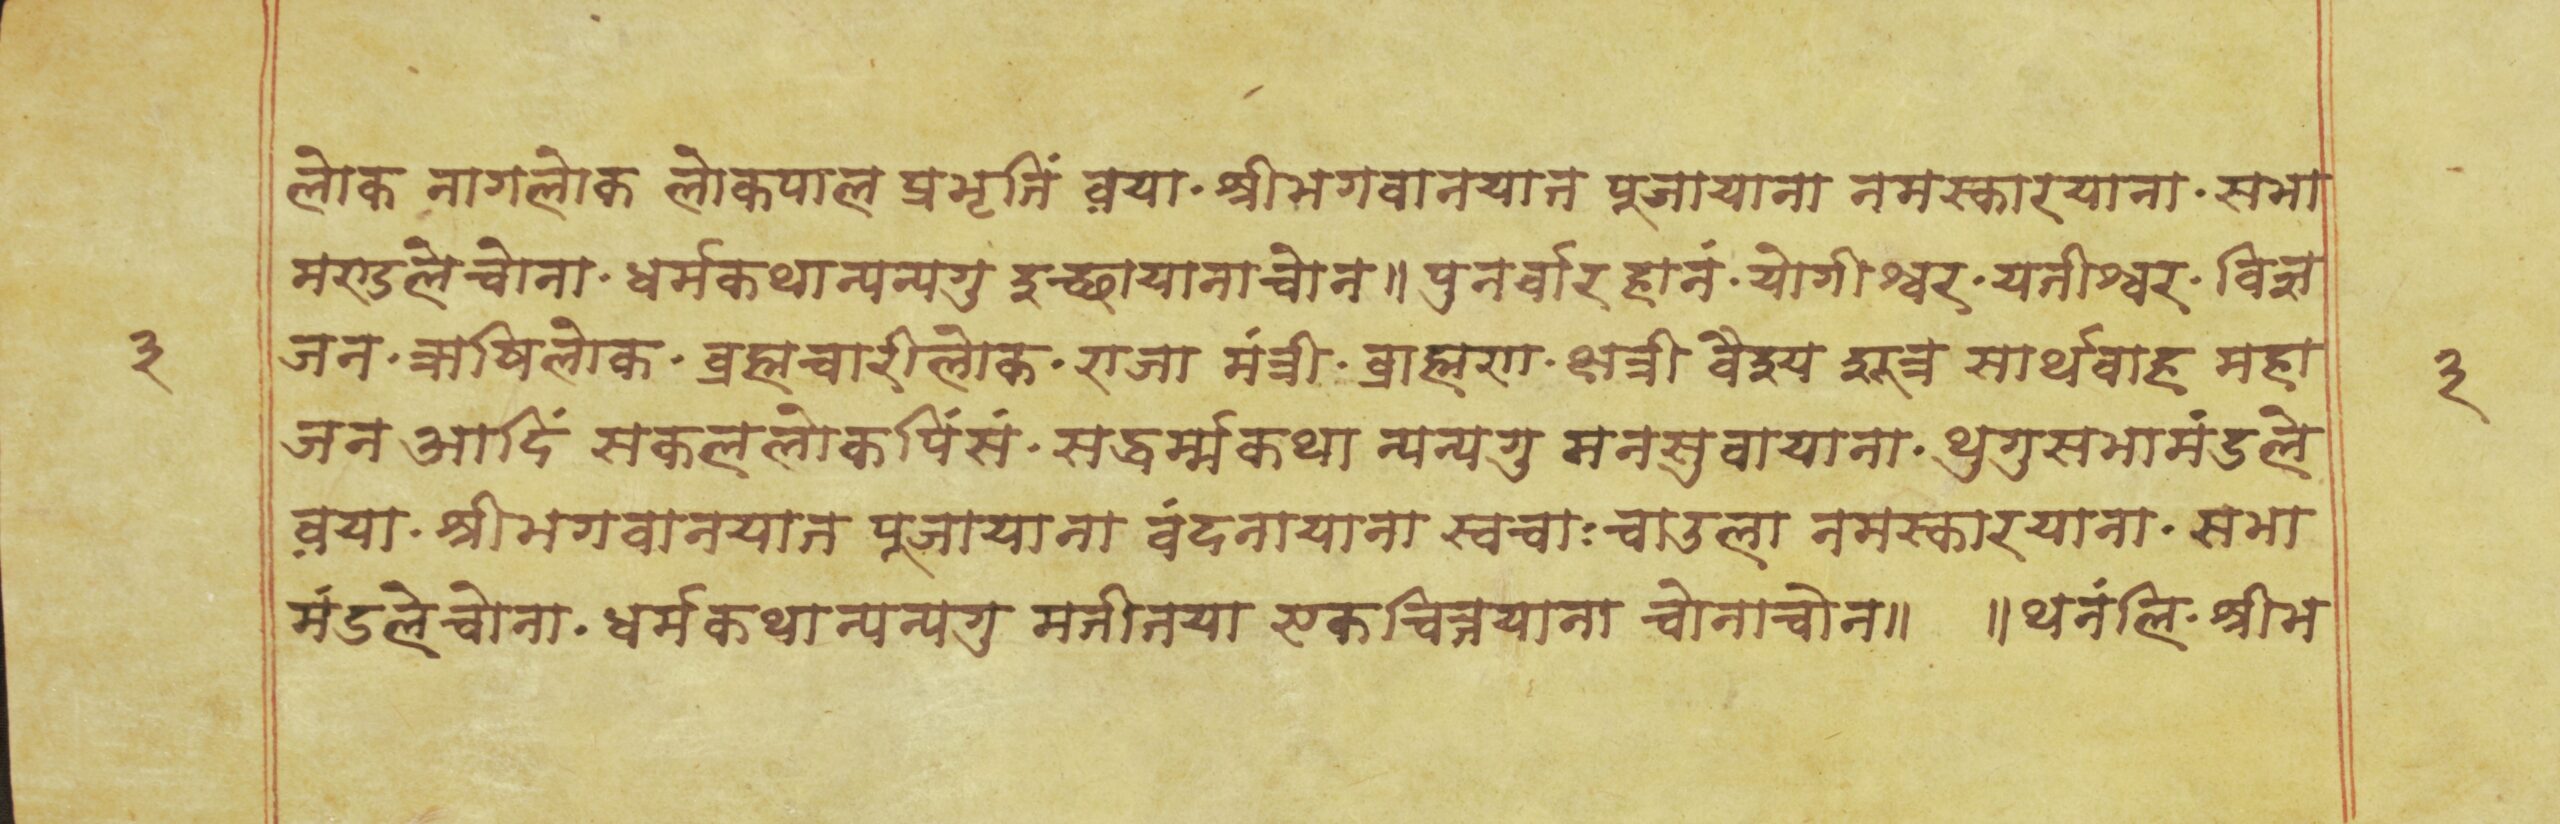 लोक नागलोक लोकपाल प्रभृतिं व़या· श्रीभगवानयात पूजायाना नमस्कारयाना· सभा
मण्डलेचोना· धर्मकथान्यन्यगु इच्छायानाचोन॥ पुनर्वार हानं· योगीश्वर· यतीश्वर· विज्ञ
३ जन· ऋषिलोक· ब्रह्मचारीलोक· राजा मंत्री· ब्राह्मण· क्षत्री वैश्य शूद्र सार्थवाह महा ३
जन आदिं सकललोकपिंसं· सद्धर्म्मकथा न्यन्यगु मनसुवायाना· थुगुसभामंडले
व़या· श्रीभगवानयात पूजायाना वंदनायाना स्वचाः चाउला नमस्कारयाना· सभा
मंडलेचोना· धर्मकथान्यन्यगु मतीतया एकचित्तयाना चोनाचोन॥ ॥थनंलि· श्रीभ